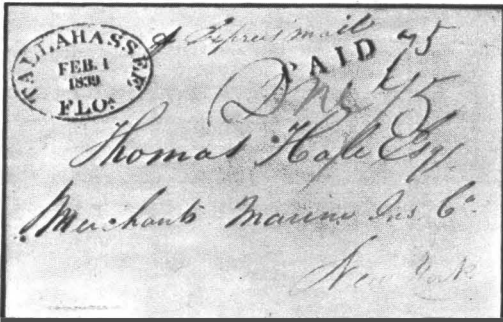 TALLAHASSEE
FEB. 1
1839
FLO.
Express mail
PAID 75
Thomas Hale Esq
Merchants Marine Ins Co
New York